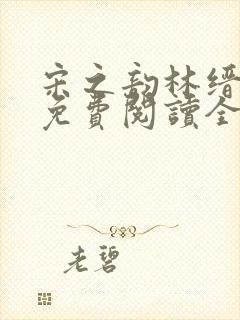 宋之韵林缙
免費閱讀全
老碧